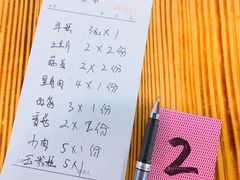 年糕 3元×1
土豆片 2×2份
藕片 2×2份
里脊肉 4×1份
西蓝 3×1份
香菇 2×1份
牛肉 5×1份
玉米粒 5×1
2